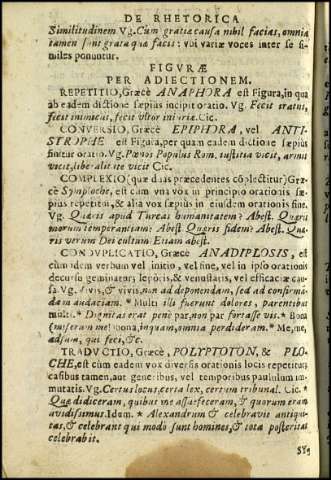 DE RHETORICA
Similitudinem Vg. Cum gratiæ causa nihil facias, omnia
tamen sunt grata quæ facis: voi variæ voces inter se si-
miles ponuntur.
FIGVRÆ
PER ADIECTIONEM.
REPETITIO, Græcè ANAPHORA est Figura, in qua
ab eadem dictione sæpius incipit oratio. Vg. Fecit iratus,
fecit inimicus, fecit vltor iniuriæ. Cic.
CONVERSIO, Græcè EPIPHORA, vel ANTI-
STROPHE est Figura, per quam eadem dictione sæpius
finitur oratio. Vg. Pœnos Populus Rom. iustitia vicit, armis
vicit, liberalitate vicit Cic.
COMPLEXIO (quæ duas præcedentes cõplectitur) Græ-
cè Symploche, est cum vna vox in principio orationis sæ-
pius repetitur, & alia vox sæpius in eiusdem orationis fine.
Vg. Quæris apud Turcas humanitatem? Abest. Quæris
morum temperantiam? Abest Quæris fidem? Abest. Quæ-
ris verum Dei cultum Etiam abest.
CONDVPLICATIO, Græcè ANADIPLOSIS, est
cum idem verbum vel initio, vel fine, vel in ipso orationis
decursu geminatur; lepôris, & venustatis, vel efficaciæ cau-
sa. Vg. Viuis, & viuis, non ad deponendam, sed ad confirmã-
dam audaciam. * Multi illi fuerunt dolores, parentibus
multi. * Dignitas erat penè par, non par fortasse vis. * Bona
(miserum me) bona, inquam, omnia perdideram. * Me, me,
adsum, qui feci, &c.
TRADVCTIO, Græcè, POLYPTOTON, & PLO-
CHE, est cum eadem vox diversis orationis locis repetitur,
casibus tamen, aut generibus, vel temporibus paululum im-
mutatis. Vg. Certus locus, certa lex, certum tribunal. Cic. *
Quæ didiceram, quibus me assuefeceram, & quorum eram
avidissimus. Idem. * Alexandrum & celebravit antiqui-
tas, & celebrant qui modò sunt homines, & tota posteritas
celebrabit.